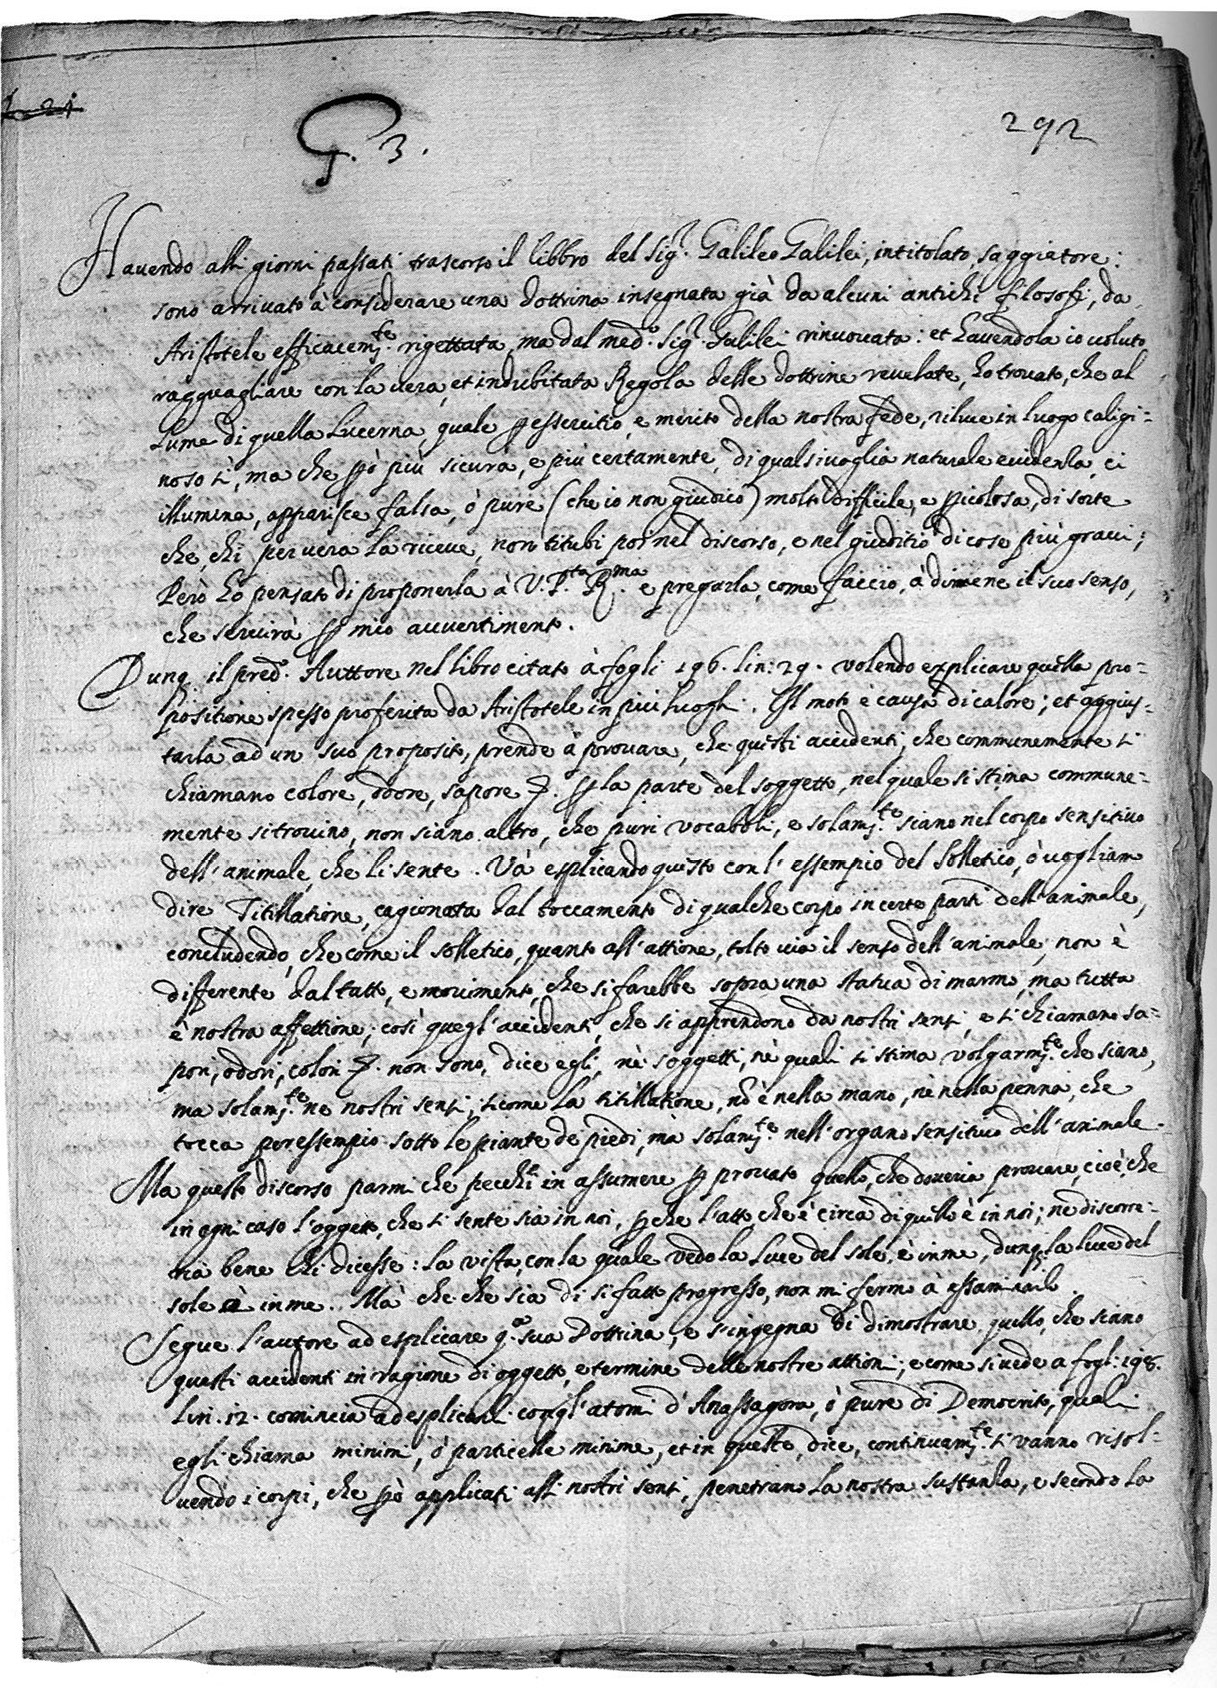 G. 3.
292
Havendo alli giorni passati trascorso il libbro del Sig.r Galileo Galilei, intitolato saggiatore:
sono arrivato à considerare una dottrina insegnata già da alcuni antichi filosofi, da
Aristotele efficacem.te rigettata, ma dal med.o Sig.r Galilei rinuovata: et havendola io voluto
ragguagliare con la vera, et indubitata Regola delle dottrine revelate, hò trovato, che al
lume di quella Lucerna, quale p essercitio, e merito della nostra fede, riluce in luogo caligi=
noso sì, ma che pò più sicura, e più certamente, di qualsivoglia naturale evidenza, ci
illumina, apparisce falsa, ò pure (che io non giudico) molto difficile, e picolosa, di sorte
che, chi per vera la riceve, non titubi poi nel discorso, e nel giuditio di cose più gravi;
Però hò pensato di proponerla à V. P.tà R.ma e pregarla, come faccio, à dirmene il suo senso,
che servirà p mio avvertimento.
Dunq il pred.o Auttore nel libro citato à fogli 196. lin: 29. volendo explicare quella pro=
positione spesso proferita da Aristotele in più luoghi. Il moto è causa di calore; et aggius=
tarla ad un suo proposito, prende à provare, che questi accidenti, che communemente si
chiamano colore, odore, sapore &. p la parte del soggetto, nel quale si stima commune=
mente si trovino, non siano altro, che puri vocaboli, e solam.te siano nel corpo sensitivo
dell'animale, che li sente. Và esplicando questo con l'essempio del Solletico, ò vogliam
dire Titillatione, cagionata dal toccamento di qualche corpo in certe parti dell'animale,
concludendo, che come il solletico, quanto all'attione, tolto via il senso dell'animale, non è
differente dal tatto, e movimento, che si farebbe sopra una statua di marmo, ma tutta
è nostra affettione; così quegl'accidenti, che si apprendono da nostri sensi, e si chiamano sa=
pori, odori, colori &. non sono, dice egli, nè soggetti, nè quali si stima volgarm.te che siano,
ma solam.te ne nostri sensi; sicome la titillatione, nò è nella mano, nè nella penna, che
tocca per essempio sotto le piante de piedi, mà solam.te nell'organo sensitivo dell'animale.
Ma questo discorso parmi che pecchi in assumere p provato quello, che doveria provare, cioè, che
in ogni caso l'oggetto, che si sente sia in noi, pche l'atto che è circa di quello è in noi; ne discorre=
ria bene chi dicesse: la vista, con la quale vedo la luce del sole, è in me, dunq la luce del
sole è in me. Mà che che sia di sì fatto progresso, non mi fermo à essaminarlo.
Segue l'autore ad esplicare q.a sua Dottrina, e s'ingegna di dimostrare quello, che siano
questi accidenti in ragione di oggetto, e termine delle nostre attioni; e come si vede a fogl: 198.
lin. 12. comincia ad esplicarli con gl'atomi d'Anassagora, ò pure di Democrito, quali
egli chiama minimi, ò particelle minime, et in queste, dice, continuam.te si vanno risol=
vendo i corpi, che pò applicati alli nostri sensi, penetrano la nostra sustanza, e secondo la